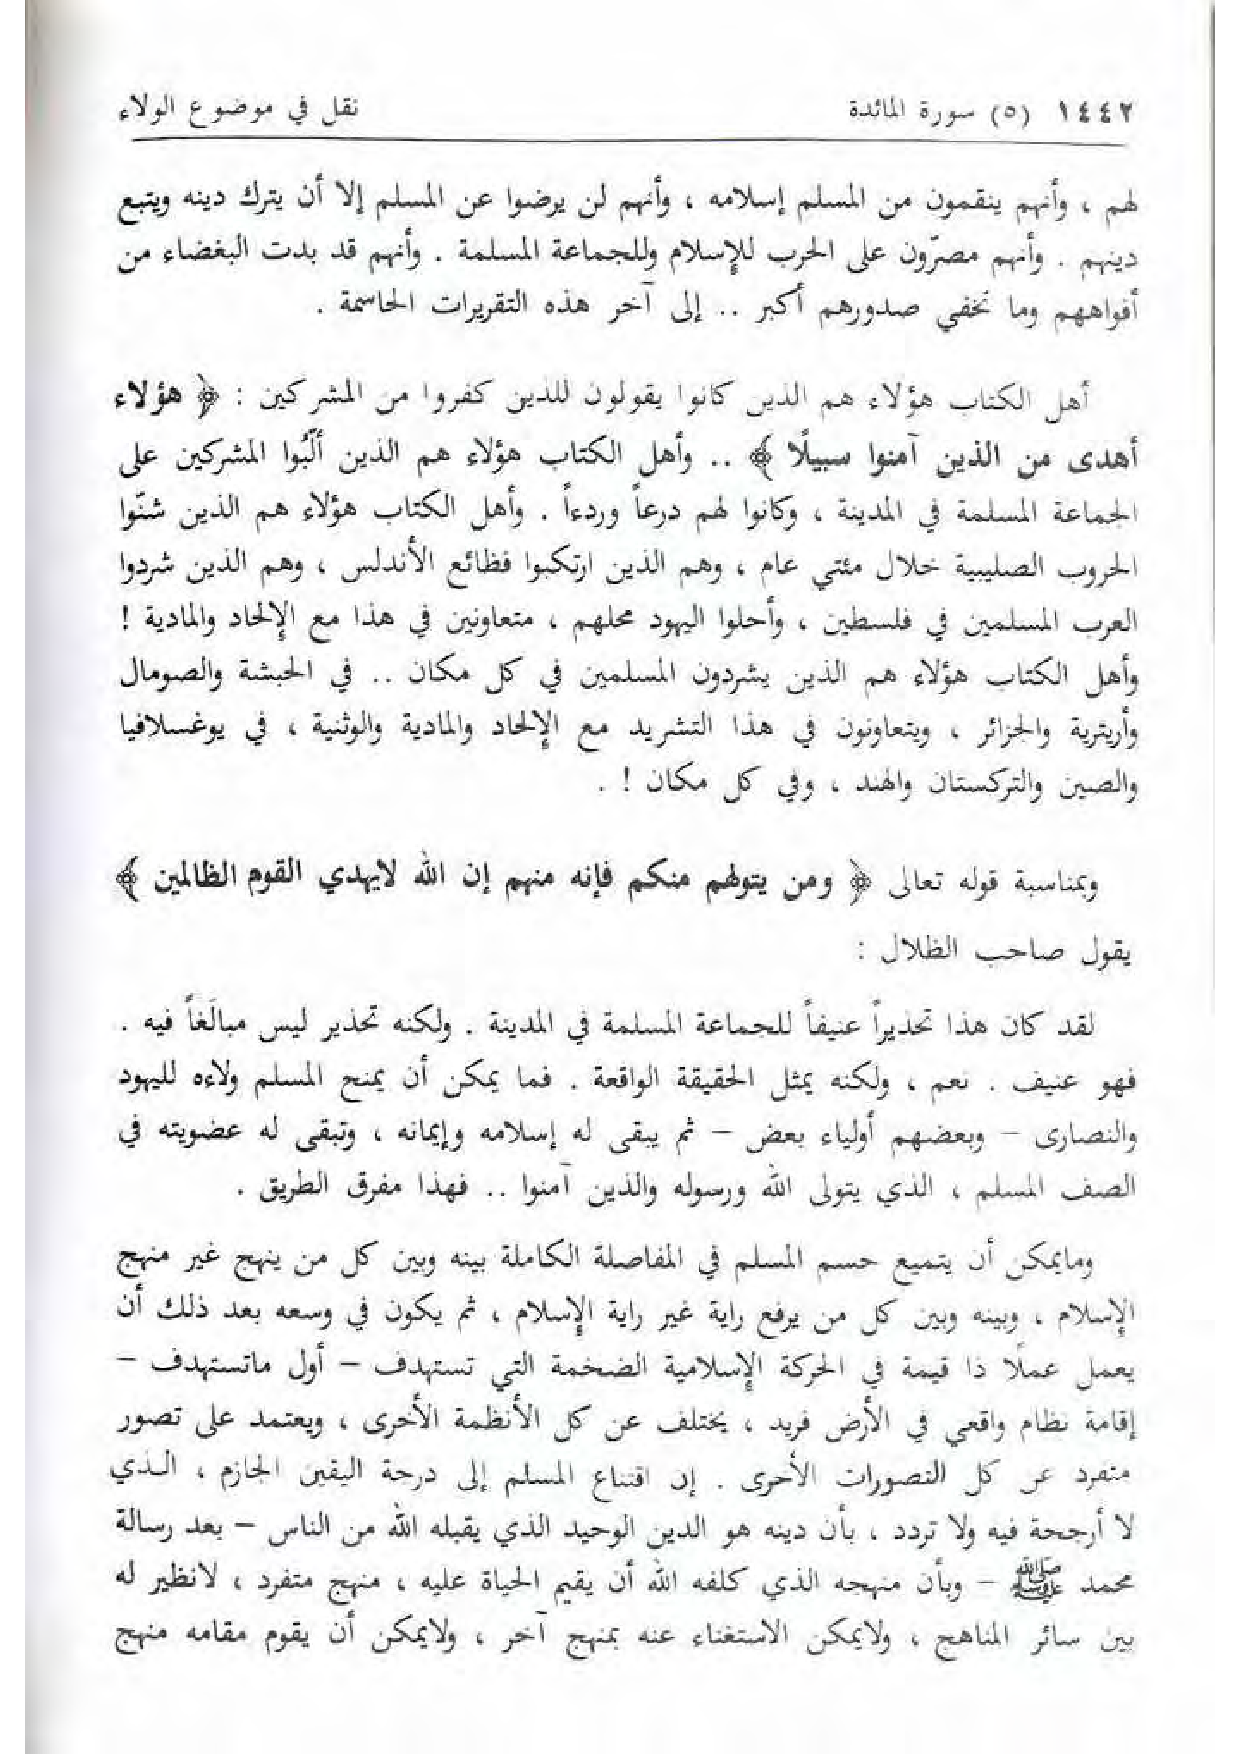 ١٤٤٢ (٥) سورة المائدة نقل في موضوع الولاء
لهم ، وأنهم ينقمون من المسلم إسلامه ، وأنهم لن يرضوا عن المسلم إلا أن يترك دينه ويتبع
دينهم . وأنهم مصرّون على الحرب للإسلام وللجماعة المسلمة . وأنهم قد بدت البغضاء من
أفواههم وما تخفي صدورهم أكبر .. إلى آخر هذه التقريرات الحاسمة .
أهل الكتاب هؤلاء هم الذين كانوا يقولون للذين كفروا من المشركين : ﴿ هؤلاء
أهدى من الذين آمنوا سبيلًا ﴾ .. وأهل الكتاب هؤلاء هم الذين ألّبُوا المشركين على
الجماعة المسلمة في المدينة ، وكانوا لهم درعاً وردءاً . وأهل الكتاب هؤلاء هم الذين شنّوا
الحروب الصليبية خلال مئتي عام ، وهم الذين ارتكبوا فظائع الأندلس ، وهم الذين شردوا
العرب المسلمين في فلسطين ، وأحلوا اليهود محلهم ، متعاونين في هذا مع الإلحاد والمادية !
وأهل الكتاب هؤلاء هم الذين يشردون المسلمين في كل مكان .. في الحبشة والصومال
وأريترية والجزائر ، ويتعاونون في هذا التشريد مع الإلحاد والمادية والوثنية ، في يوغسلافيا
والصين والتركستان والهند ، وفي كل مكان ! .
وبمناسبة قوله تعالى ﴿ ومن يتولهم منكم فإنه منهم إن الله لايهدي القوم الظالمين ﴾
يقول صاحب الظلال :
لقد كان هذا تحذيراً عنيفاً للجماعة المسلمة في المدينة . ولكنه تحذير ليس مبالَغاً فيه .
فهو عنيف . نعم ، ولكنه يمثل الحقيقة الواقعة . فما يمكن أن يمنح المسلم ولاءه لليهود
والنصارى – وبعضهم أولياء بعض – ثم يبقى له إسلامه وإيمانه ، وتبقى له عضويته في
الصف المسلم ، الذي يتولى الله ورسوله والذين آمنوا .. فهذا مفرق الطريق .
ومايمكن أن يتميع حسم المسلم في المفاصلة الكاملة بينه وبين كل من ينهج غير منهج
الإسلام ، وبينه وبين كل من يرفع راية غير راية الإسلام ، ثم يكون في وسعه بعد ذلك أن
يعمل عملًا ذا قيمة في الحركة الإسلامية الضخمة التي تستهدف – أول ماتستهدف –
إقامة نظام واقعي في الأرض فريد ، يختلف عن كل الأنظمة الأخرى ، ويعتمد على تصور
متفرد عن كل التصورات الأخرى . إن اقتناع المسلم إلى درجة اليقين الجازم ، الذي
لا أرجحة فيه ولا تردد ، بأن دينه هو الدين الوحيد الذي يقبله الله من الناس – بعد رسالة
محمد ﷺ – وبأن منهجه الذي كلفه الله أن يقيم الحياة عليه ، منهج متفرد ، لانظير له
بين سائر المناهج ، ولايمكن الاستغناء عنه بمنهج آخر ، ولايمكن أن يقوم مقامه منهج